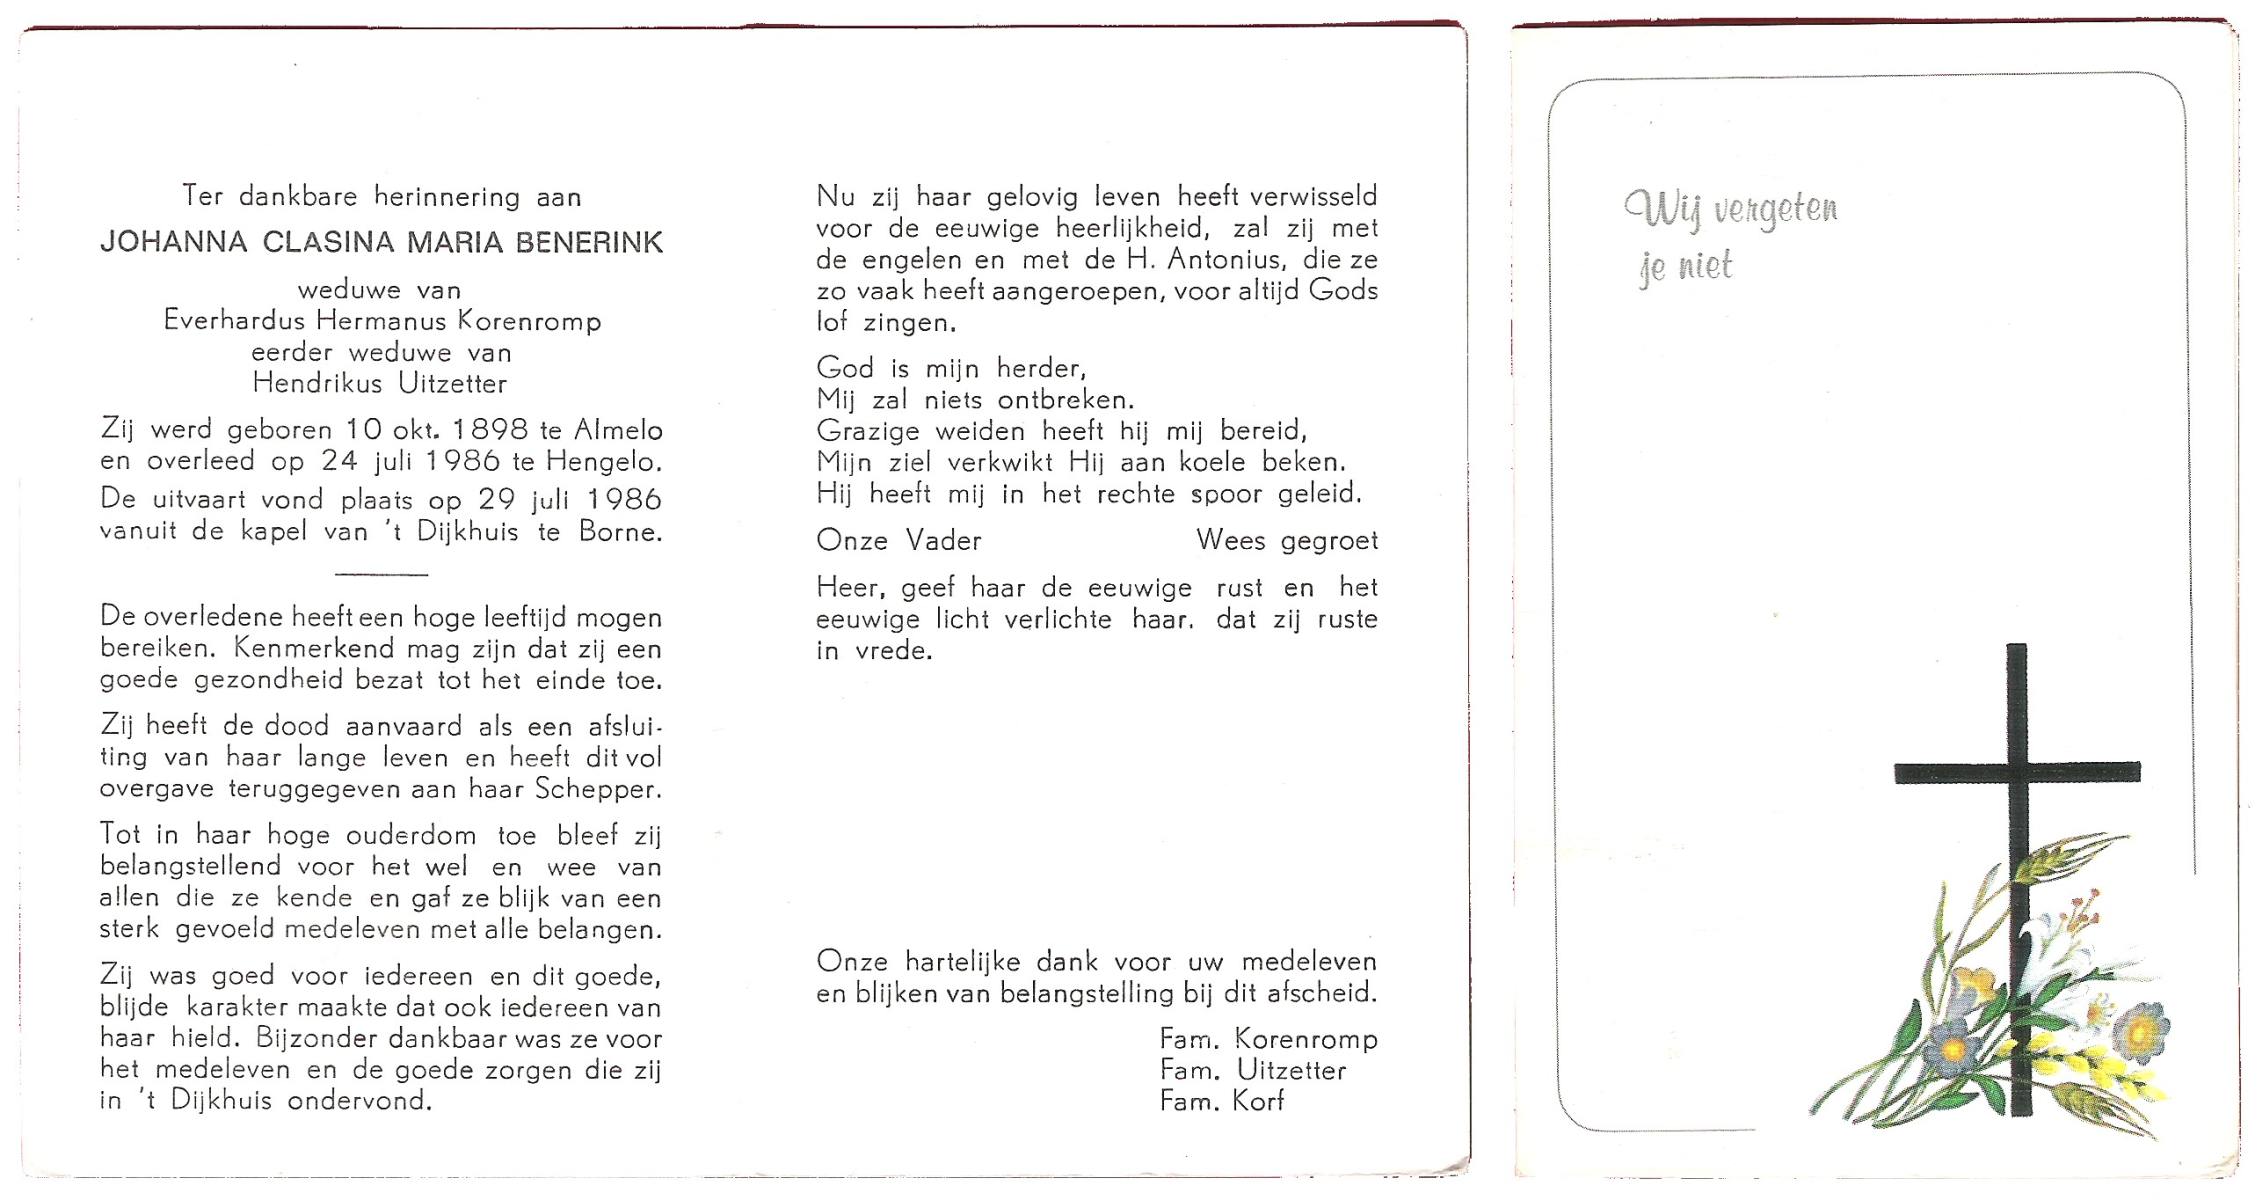 Ter dankbare herinnering aan
JOHANNA CLASINA MARIA BENERINK
weduwe van
Everhardus Hermanus Korenromp
eerder weduwe van
Hendrikus Uitzetter
Zij werd geboren 10 okt. 1898 te Almelo
en overleed op 24 juli 1986 te Hengelo.
De uitvaart vond plaats op 29 juli 1986
vanuit de kapel van 't Dijkhuis te Borne.
De overledene heeft een hoge leeftijd mogen
bereiken. Kenmerkend mag zijn dat zij een
goede gezondheid bezat tot het einde toe.
Zij heeft de dood aanvaard als een afslui-
ting van haar lange leven en heeft dit vol
overgave teruggegeven aan haar Schepper.
Tot in haar hoge ouderdom toe bleef zij
belangstellend voor het wel en wee van
allen die ze kende en gaf ze blijk van een
sterk gevoeld medeleven met alle belangen.
Zij was goed voor iedereen en dit goede,
blijde karakter maakte dat ook iedereen van
haar hield. Bijzonder dankbaar was ze voor
het medeleven en de goede zorgen die zij
in 't Dijkhuis ondervond.
Nu zij haar gelovig leven heeft verwisseld
voor de eeuwige heerlijkheid, zal zij met
de engelen en met de H. Antonius, die ze
zo vaak heeft aangeroepen, voor altijd Gods
lof zingen.
God is mijn herder,
Mij zal niets ontbreken.
Grazige weiden heeft hij mij bereid,
Mijn ziel verkwikt Hij aan koele beken.
Hij heeft mij in het rechte spoor geleid.
Onze Vader Wees gegroet
Heer, geef haar de eeuwige rust en het
eeuwige licht verlichte haar. dat zij ruste
in vrede.
Onze hartelijke dank voor uw medeleven
en blijken van belangstelling bij dit afscheid.
Fam. Korenromp
Fam. Uitzetter
Fam. Korf
Wij vergeten
je niet